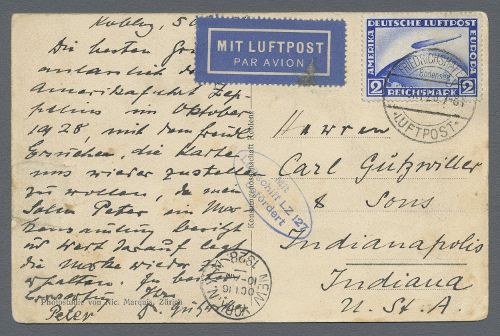 Koblenz, 5 Okt.
Die besten Grüsse
anlässlich der
Amerikafahrt Zep-
pelins im Oktober
1928, mit dem freundl.
Ersuchen, die Karte
uns wieder zustellen
zu wollen, da mein
Sohn Peter ein Mar-
kensammling
und Wert darauf legt
die Marke wieder zu
erhalten. In bester
Peter
Photographie von Nic. Marquis, Zürich
MIT LUFTPOST
PAR AVION
DEUTSCHE LUFTPOST
AMERIKA
EUROPA
2 REICHSMARK 2
FRIEDRICHSHAFEN
Bodensee
LUFTPOST
Mit
Luftschiff LZ 127
befördert
NEW YORK, N.Y.
OCT 16
10 AM
1928
Herren
Carl Gutzwiller
& Sons
Indianapolis
Indiana
U.S.A.